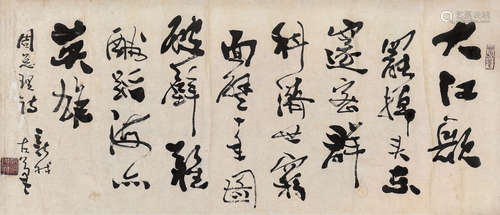 大江歌
罷掉头东
邃密群
科濟世窮
面壁十年圖
破壁難
酬蹈海亦
英雄
周总理诗